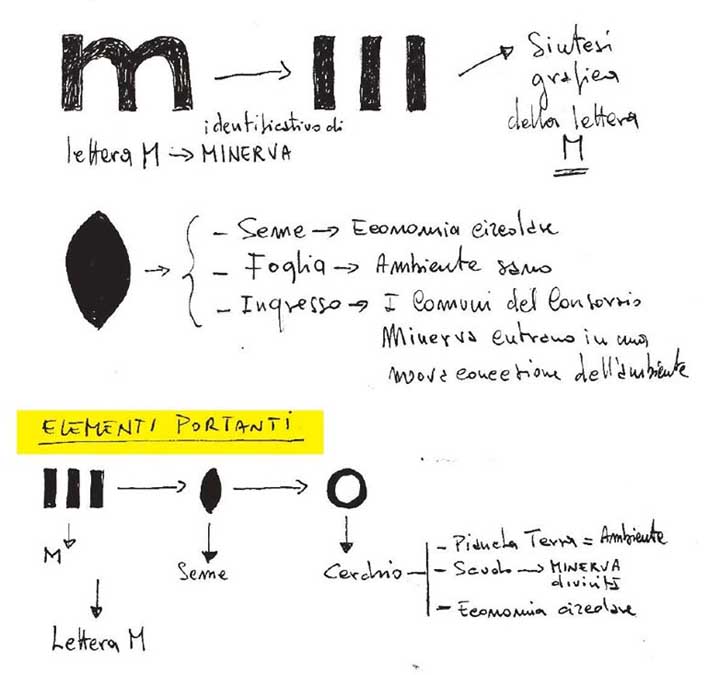 m
Sintesi
grafica
della lettera
M
identificativo di
lettera M → MINERVA
- Seme → Economia circolare
- Foglia → Ambiente sano
- Ingresso → I Comuni del Consorzio
Minerva entrano in una
nuova concezione dell'ambiente
ELEMENTI PORTANTI
M
Seme
Cerchio
- Pianeta Terra = Ambiente
- Scudo → MINERVA
divinità
- Economia circolare
Lettera M